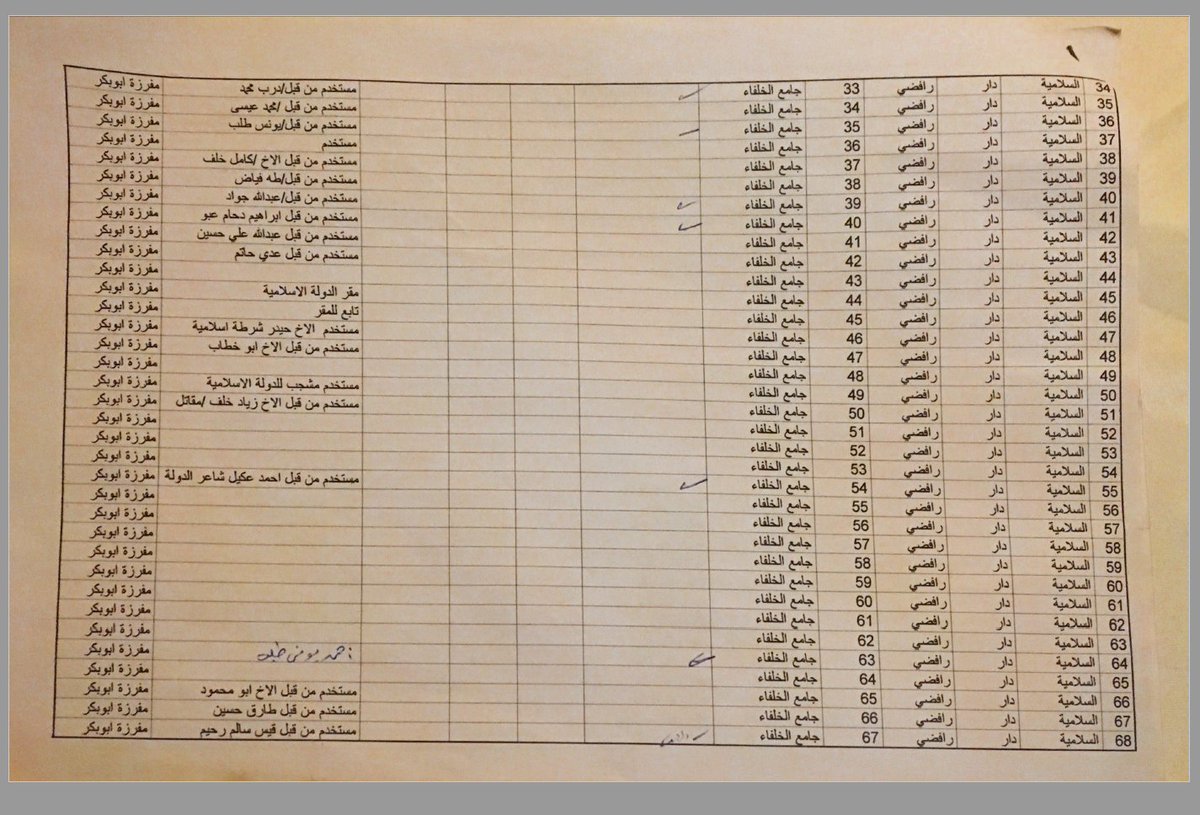 ١
34 السلامية دار رافضي 33 جامع الخلفاء مستخدم من قبل/درب محمد مفرزة ابوبكر
35 السلامية دار رافضي 34 جامع الخلفاء مستخدم من قبل /محمد عيسى مفرزة ابوبكر
36 السلامية دار رافضي 35 جامع الخلفاء مستخدم من قبل/يونس طلب مفرزة ابوبكر
37 السلامية دار رافضي 36 جامع الخلفاء مستخدم مفرزة ابوبكر
38 السلامية دار رافضي 37 جامع الخلفاء مستخدم من قبل الاخ /كامل خلف مفرزة ابوبكر
39 السلامية دار رافضي 38 جامع الخلفاء مستخدم من قبل/طه فياض مفرزة ابوبكر
40 السلامية دار رافضي 39 جامع الخلفاء مستخدم من قبل/عبدالله جواد مفرزة ابوبكر
41 السلامية دار رافضي 40 جامع الخلفاء مستخدم من قبل ابراهيم دحام عبو مفرزة ابوبكر
42 السلامية دار رافضي 41 جامع الخلفاء مستخدم من قبل عبدالله علي حسين مفرزة ابوبكر
43 السلامية دار رافضي 42 جامع الخلفاء مستخدم من قبل عدي حاتم مفرزة ابوبكر
44 السلامية دار رافضي 43 جامع الخلفاء مفرزة ابوبكر
45 السلامية دار رافضي 44 جامع الخلفاء مقر الدولة الاسلامية مفرزة ابوبكر
46 السلامية دار رافضي 45 جامع الخلفاء تابع للمقر مفرزة ابوبكر
47 السلامية دار رافضي 46 جامع الخلفاء مستخدم الاخ حيدر شرطة اسلامية مفرزة ابوبكر
48 السلامية دار رافضي 47 جامع الخلفاء مستخدم من قبل الاخ ابو خطاب مفرزة ابوبكر
49 السلامية دار رافضي 48 جامع الخلفاء مفرزة ابوبكر
50 السلامية دار رافضي 49 جامع الخلفاء مستخدم مشجب للدولة الاسلامية مفرزة ابوبكر
51 السلامية دار رافضي 50 جامع الخلفاء مستخدم من قبل الاخ زياد خلف /مقاتل مفرزة ابوبكر
52 السلامية دار رافضي 51 جامع الخلفاء مفرزة ابوبكر
53 السلامية دار رافضي 52 جامع الخلفاء مفرزة ابوبكر
54 السلامية دار رافضي 53 جامع الخلفاء مفرزة ابوبكر
55 السلامية دار رافضي 54 جامع الخلفاء مستخدم من قبل احمد عكيل شاعر الدولة مفرزة ابوبكر
56 السلامية دار رافضي 55 جامع الخلفاء مفرزة ابوبكر
57 السلامية دار رافضي 56 جامع الخلفاء مفرزة ابوبكر
58 السلامية دار رافضي 57 جامع الخلفاء مفرزة ابوبكر
59 السلامية دار رافضي 58 جامع الخلفاء مفرزة ابوبكر
60 السلامية دار رافضي 59 جامع الخلفاء مفرزة ابوبكر
61 السلامية دار رافضي 60 جامع الخلفاء مفرزة ابوبكر
62 السلامية دار رافضي 61 جامع الخلفاء مفرزة ابوبكر
63 السلامية دار رافضي 62 جامع الخلفاء مفرزة ابوبكر
64 السلامية دار رافضي 63 جامع الخلفاء مفرزة ابوبكر
65 السلامية دار رافضي 64 جامع الخلفاء مفرزة ابوبكر
66 السلامية دار رافضي 65 جامع الخلفاء مستخدم من قبل الاخ ابو محمود مفرزة ابوبكر
67 السلامية دار رافضي 66 جامع الخلفاء مستخدم من قبل طارق حسين مفرزة ابوبكر
68 السلامية دار رافضي 67 جامع الخلفاء مستخدم من قبل قيس سالم رحيم مفرزة ابوبكر